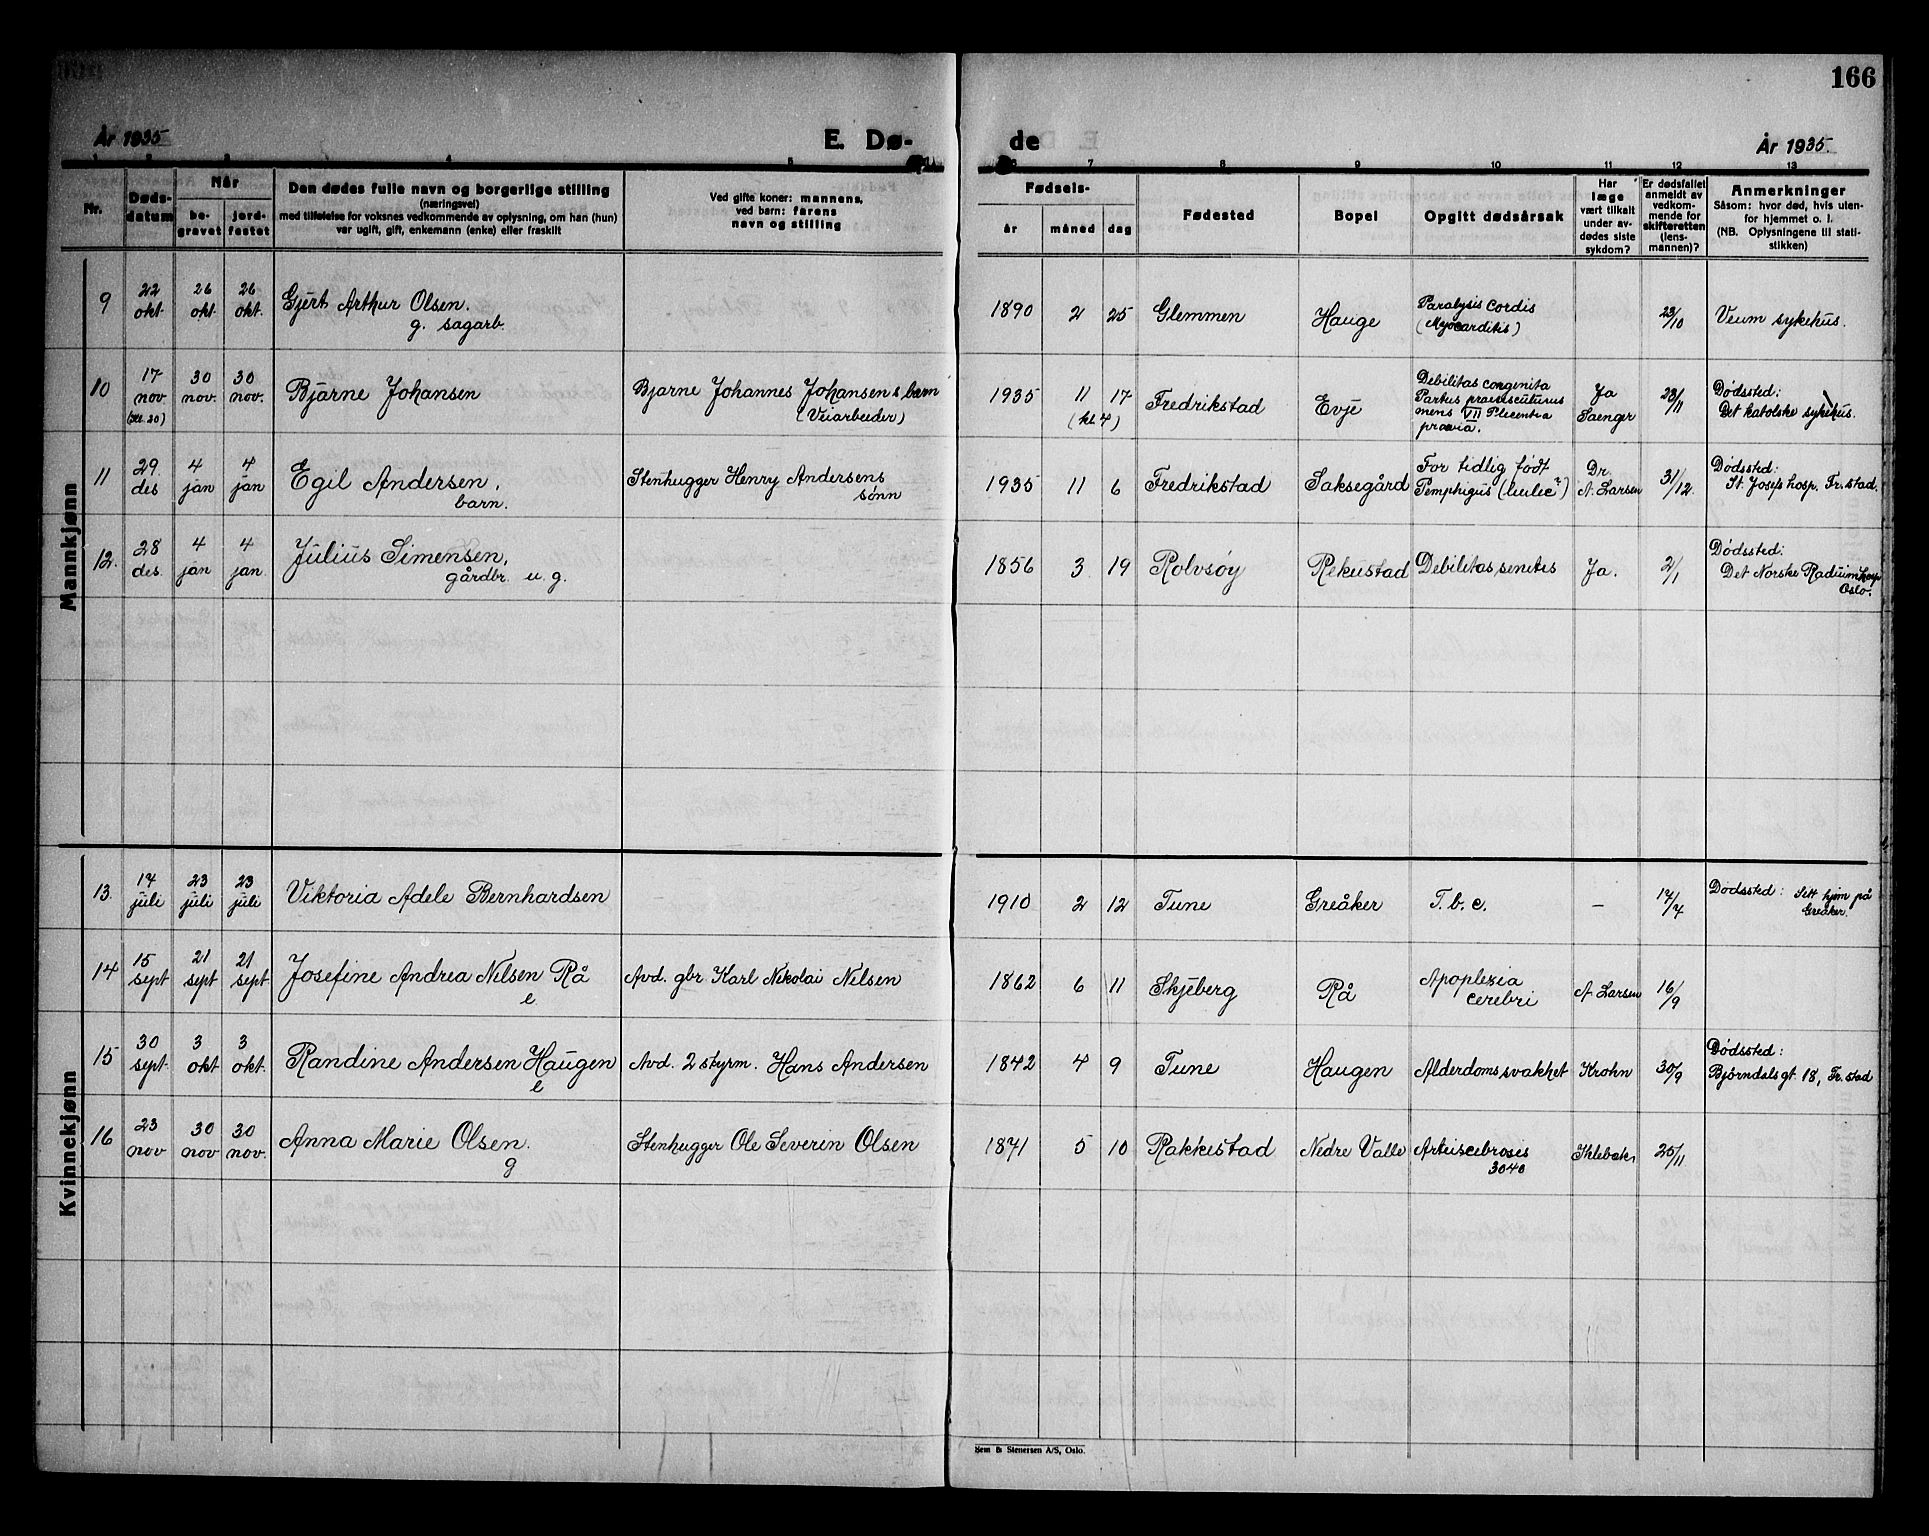 166
År 1935
E. Dø-
de
År 1935.
1 2 3 4 5 6 7 8 9 10 11 12 13
Nr.
Døds-
datum
Når
be-
gravet
jord-
festet
Den dødes fulle navn og borgerlige stilling
(næringsvei)
med tilføielse for voksnes vedkommende av oplysning, om han (hun)
var ugift, gift, enkemann (enke) eller fraskilt
Ved gifte koner: mannens,
ved barn: farens
navn og stilling
Fødsels-
år måned dag
Fødested
Bopel
Opgitt dødsårsak
Har
læge
vært tilkalt
under av-
dødes siste
sykdom?
Er dødsfallet
anmeldt av
vedkom-
mende for
skifteretten
(lens-
mannen)?
Anmerkninger
Såsom: hvor død, hvis uten-
for hjemmet o. l.
(NB. Oplysningene til stati-
stikken)
Mannkjønn
9 22 okt. 26 okt. 26 okt. Gjert Arthur Olsen.
g. sagarb.
1890 2 25 Glemmen Hauge Paralysis cordis
(Myocarditis)
23/10 Veum sykehus.
10 17 nov. (kl. 20) 30 nov. 30 nov. Bjarne Johansen Bjarne Johannes Johansens barn
(Veiarbeider)
1935 11 17 (kl. 7) Fredrikstad Evje Debilitas congenita
Partus
mens VII Plecentra
prævia.
Ja
Saenger
23/11 Dødssted:
Det katolske sykehus.
11 29 des 4 jan 4 jan Egil Andersen,
barn.
Stenhugger Henry Andersens
sønn
1935 11 6 Fredrikstad Saksegård For tidlig født
Pemphigus
Dr.
A. Larsen
31/12. Dødssted:
St. Josefs hosp. Fr.stad.
12. 28 des. 4 jan 4 jan. Julius Simensen,
gårdbr. u. g.
1856 3 19 Rolvsøy Rekustad Debilitas senilis Ja. 2/1 Dødssted:
Det Norske Radiumhosp
Oslo.
Kvinnekjønn
13. 17 juli 23 juli 23 juli Viktoria Adele Bernhardsen
1910 2 12 Tune Greåker T.b.c. – 17/7 Dødssted: Sitt hjem på
Greåker.
14 15 sept 21 sept 21 sept Josefine Andrea Nilsen Rå
e.
Avd. gbr Karl Nikolai Nilsen
1862 6 11 Skjeberg Rå Apoplexia
cerebri
A. Larsen 16/9
15 30 sept. 3 okt 3 okt. Randine Andersen Haugen
e
Avd. 2 styrm. Hans Andersen
1842 4 9 Tune Haugen Alderdomssvakhet Krohn 30/9 Dødssted:
Bjørndalsgt. 18, Fr.stad
16 23 nov 30 nov 30 nov. Anna Marie Olsen.
g
Stenhugger Ole Severin Olsen
1871 5 10 Rakkestad Nedre Valle
3040
25/11
Sem & Stenersen A/S, Oslo.